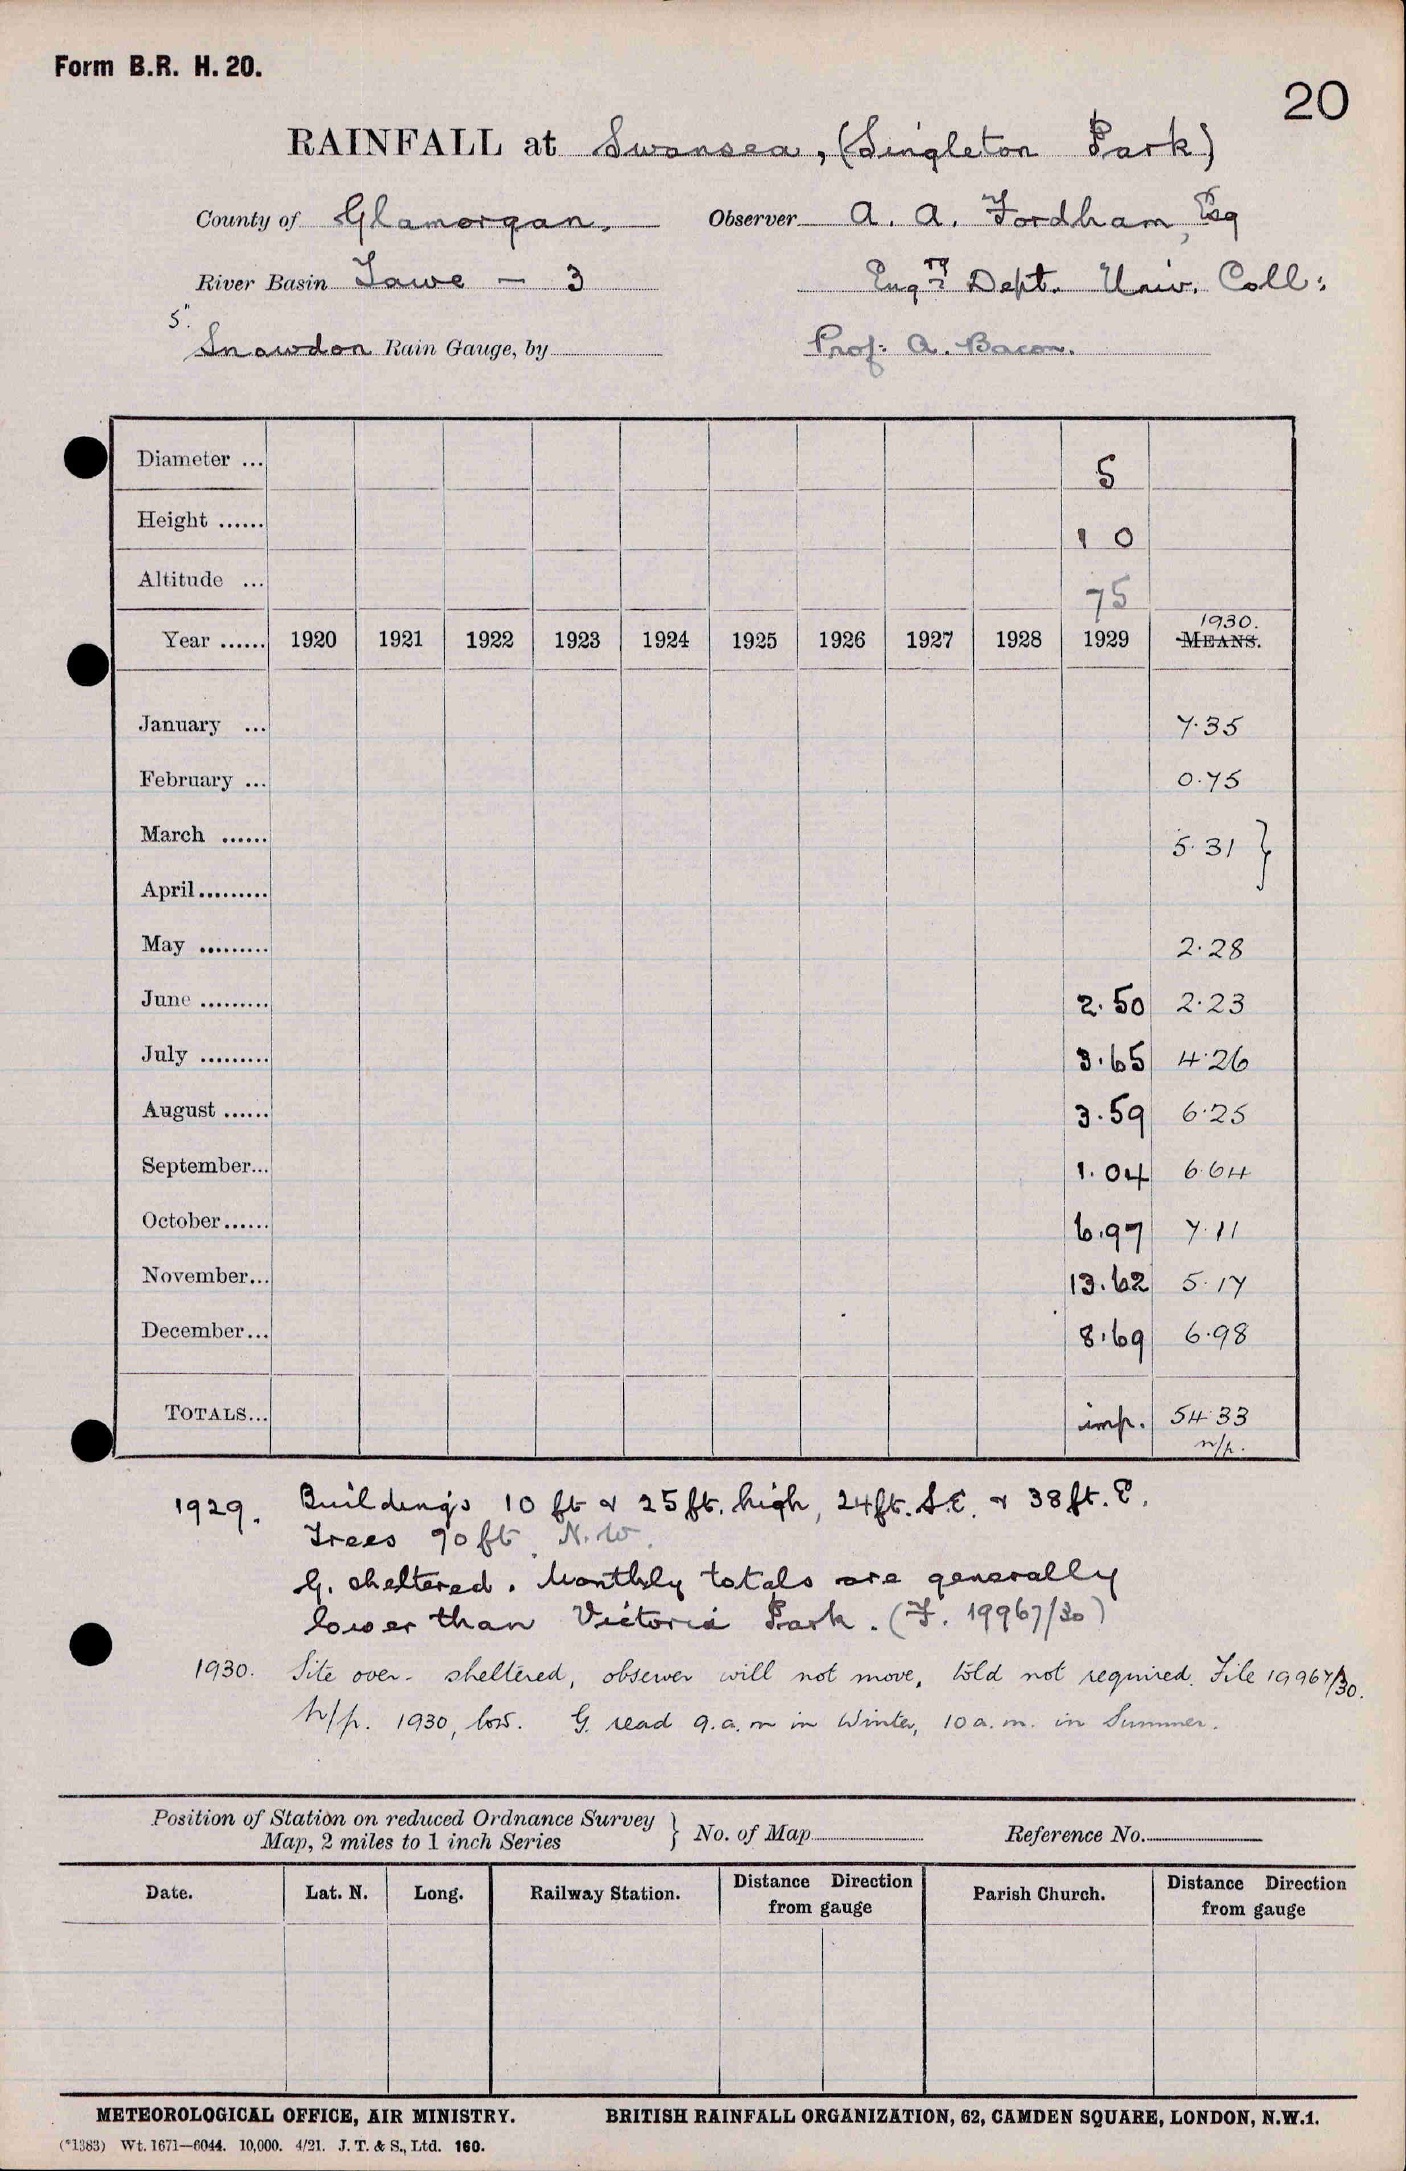 Form B.R. H. 20.
20
RAINFALL at Swansea, (Singleton Park)
County of Glamorgan. Observer A. A. Fordham, Esq
River Basin Tawe — 3 Engrg Dept. Univ. Coll:
5".
Snowdon Rain Gauge, by Prof: A. Bacon.
Diameter ... 5
Height ...... 1 0
Altitude ... 75
1930.
Year ...... 1920 1921 1922 1923 1924 1925 1926 1927 1928 1929 MEANS.
January ... 7.35
February ... 0.75
March ...... 5.31 }
April.........
May ......... 2.28
June ......... 2.50 2.23
July ......... 3.65 4.26
August ...... 3.59 6.25
September... 1.04 6.64
October...... 6.97 7.11
November... 13.62 5.17
December... 8.69 6.98
TOTALS... imp. 54.33
n/p.
1929. Buildings 10 ft & 25 ft. high, 24 ft. S.E. & 38 ft. E.
Trees 90 ft. N.W.
G. sheltered. Monthly totals are generally
lower than Victoria Park. (F. 19967/30)
1930. Site over-sheltered, observer will not move, told not required. File 19967/30.
n/p. 1930, low. G. read 9.a.m in Winter, 10 a.m. in Summer.
Position of Station on reduced Ordnance Survey
Map, 2 miles to 1 inch Series } No. of Map Reference No.
Date. Lat. N. Long. Railway Station. Distance Direction from gauge Parish Church. Distance Direction from gauge
METEOROLOGICAL OFFICE, AIR MINISTRY. BRITISH RAINFALL ORGANIZATION, 62, CAMDEN SQUARE, LONDON, N.W.1.
(*1383) Wt. 1671—6044. 10,000. 4/21. J. T. & S., Ltd. 160.